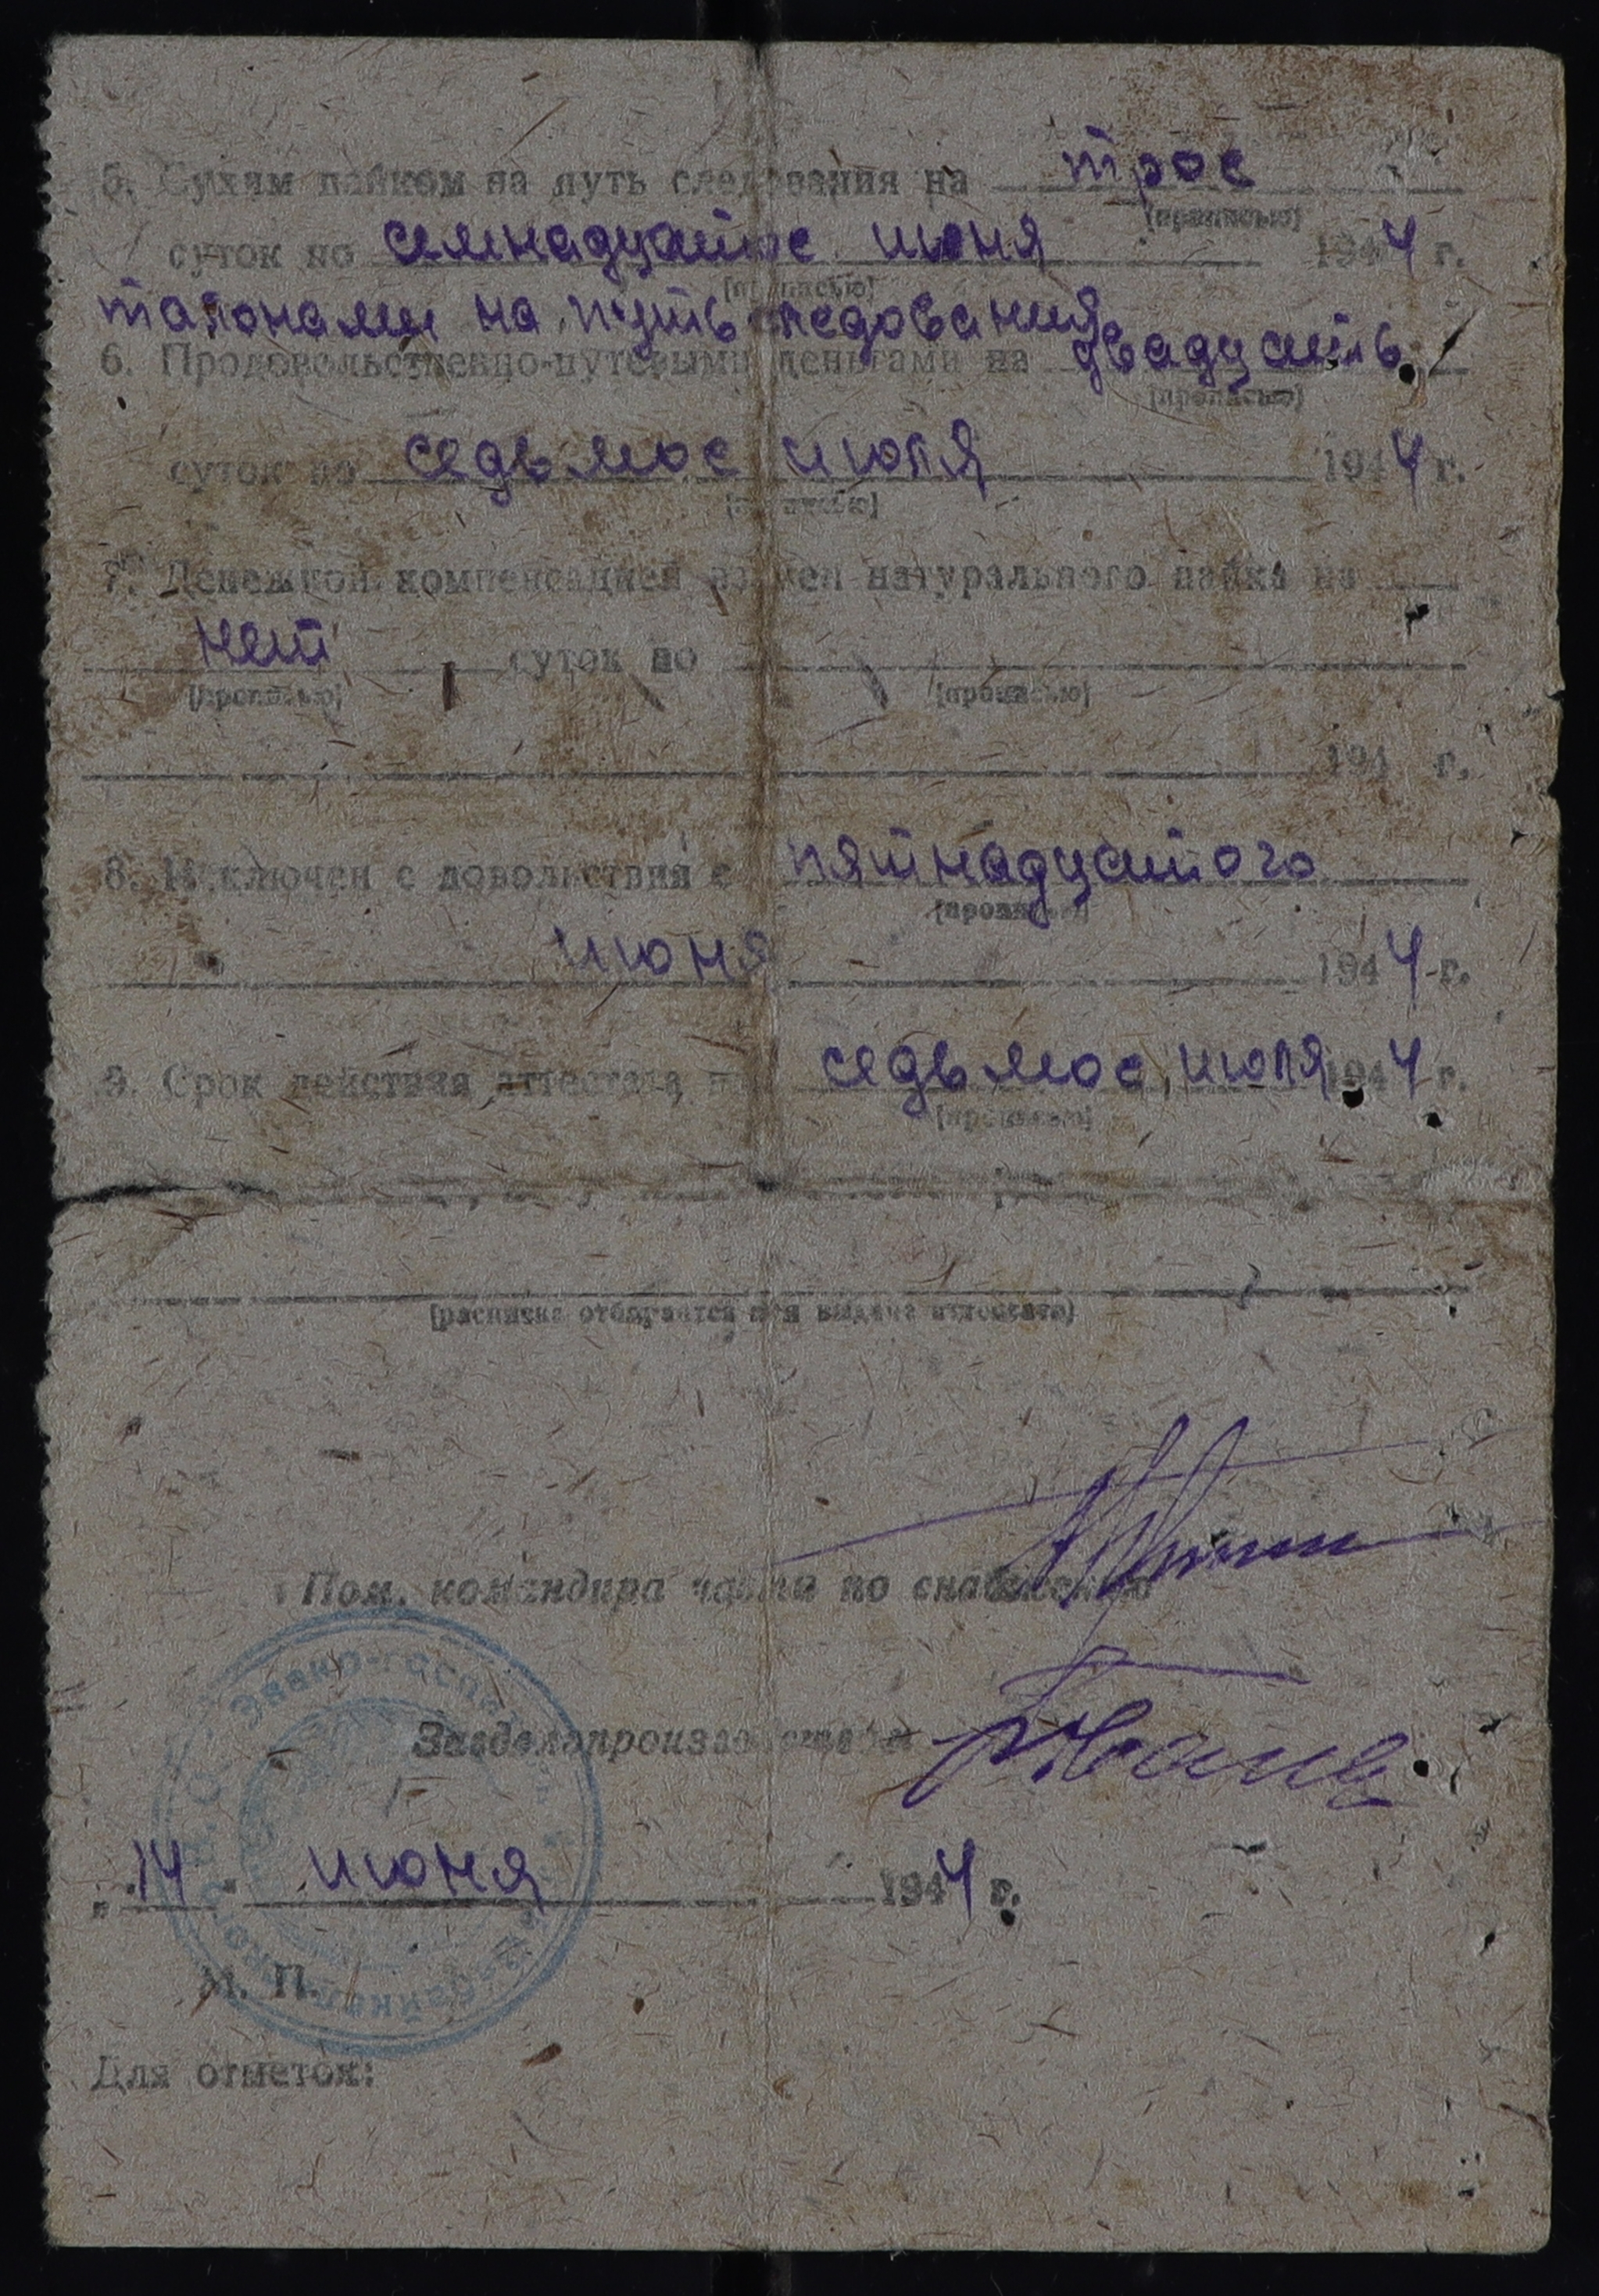 5. Сухим пайком на путь следования на трое
(прописью)
суток по семнадцатое июня 1944 г.
(прописью)
талонами на путь следования
6. Продовольственно-путевыми деньгами на двадцать
(прописью)
суток по седьмое июля 1944 г.
(прописью)
7. Денежной компенсацией взамен натурального пайка на
нет суток по
(прописью) (прописью)
194 г.
8. Исключен с довольствия с пятнадцатого
(прописью)
июня 1944 г.
9. Срок действия аттестата по седьмое июля 1944 г.
(прописью)
(расписка отбирается при выдаче аттестата)
Пом. командира части по снабжению
Завделопроизводством
"14" июня 1944 г.
М. П.
Для отметок: